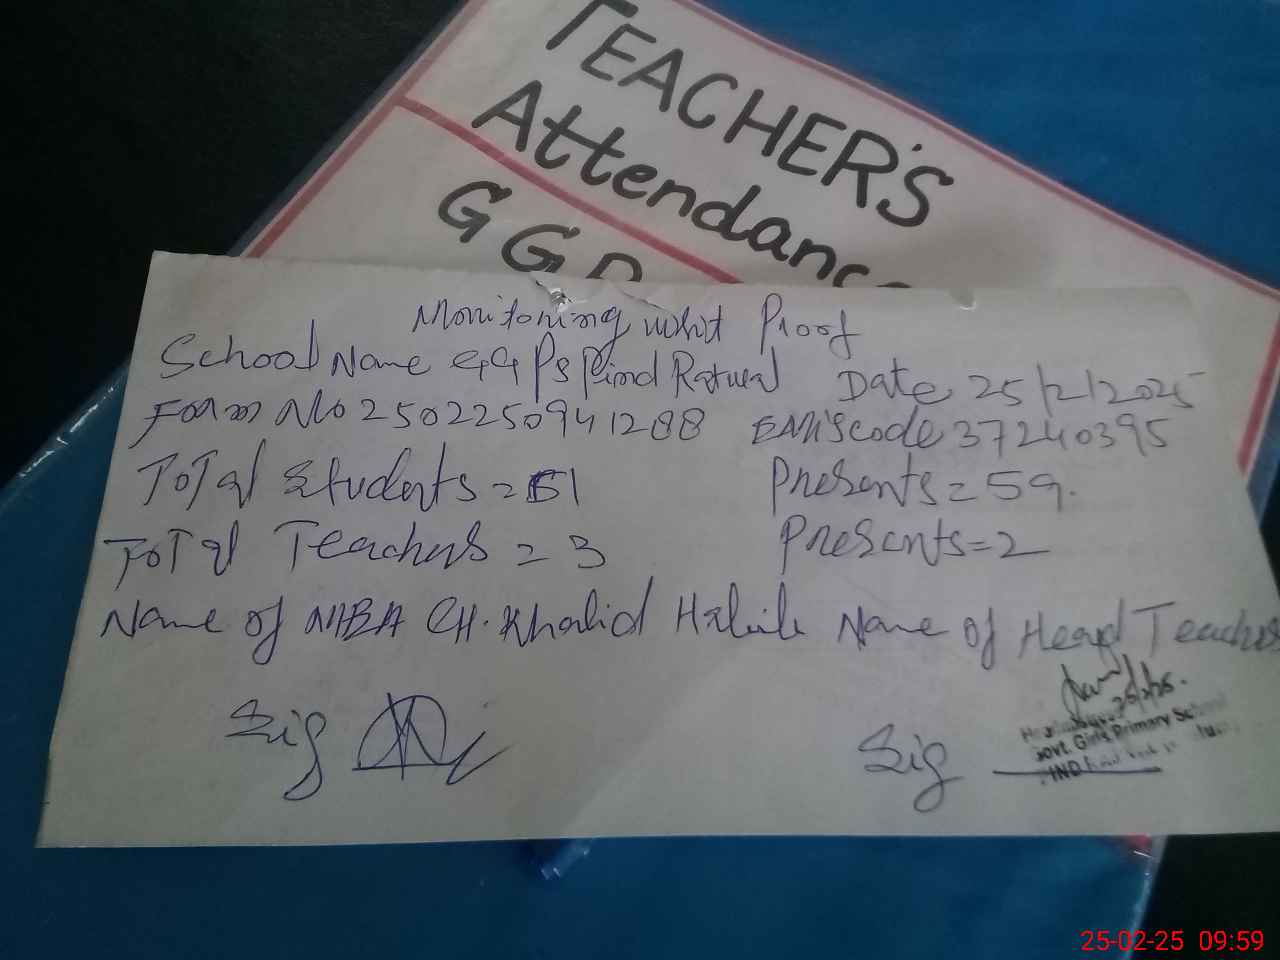 TEACHER'S
Attendance
G G P
Monitoring visit Proof
School Name GGPS Pind Ratwal Date 25/2/2025
Form No 2502250941288 EMIS code 37240395
Total Students = 61 Presents = 59.
Total Teachers = 3 Presents = 2
Name of MEA CH. Khalid Habib Name of Head Teacher
25/2/25.
Govt. Girls Primary School
Sig Sig
25-02-25 09:59